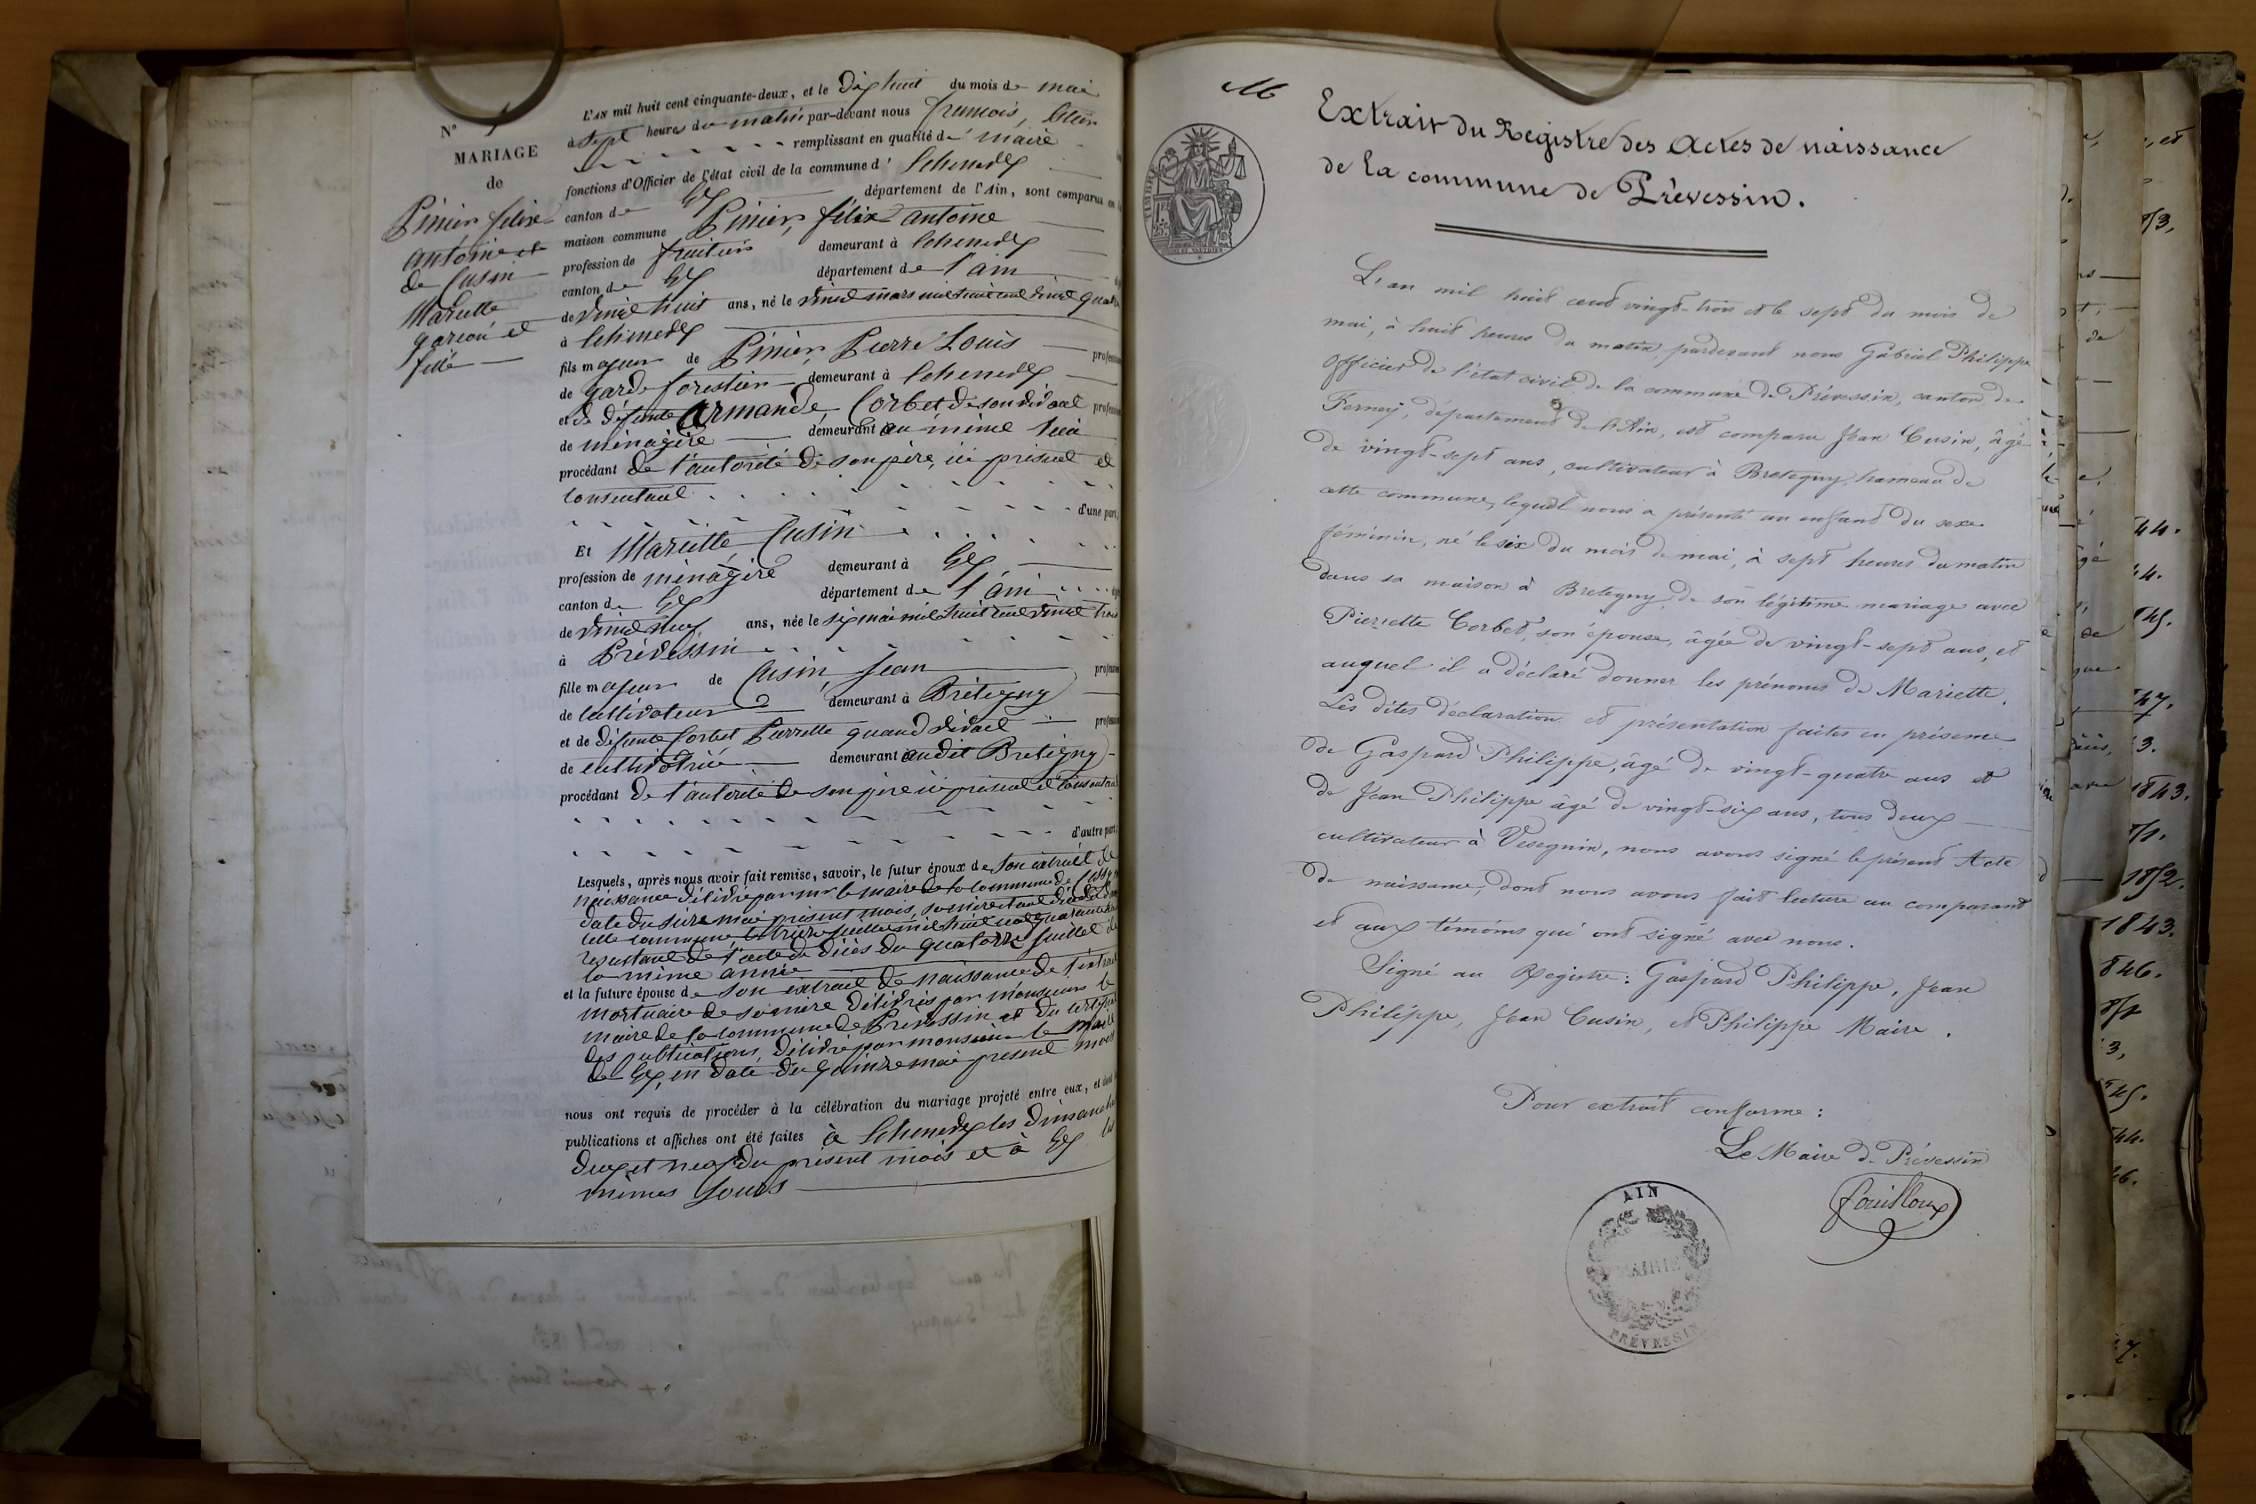 N° 1
MARIAGE
de
Pinier félix
antoine et
de Cusin
Mariette
garcon et
fille
L'AN mil huit cent cinquante-deux, et le dix huit du mois de mai
à sept heures du matin par-devant nous françois,
remplissant en qualité de maire
fonctions d'Officier de l'état civil de la commune d' Echenevex
canton de Gex département de l'Ain, sont comparus en la
maison commune Pinier, félix antoine
profession de fruitier demeurant à Echenevex
canton de Gex département de l'ain
de vingt huit ans, né le vingt mars mil huit cent vingt quatre
à Echenevex
fils majeur de Pinier, Pierre Louis profession
de garde forestier demeurant à Echenevex
et de défunte Armande Corbet de son vivant profession
de ménagère demeurant au même lieu
procédant de l'autorité de son père, ici présent et
consentant
d'une part,
Et Mariette Cusin
profession de ménagère demeurant à Gex
canton de Gex département de l'ain
de vingt neuf ans, née le six mai mil huit cent vingt trois
à Prévessin
fille majeur de Cusin, Jean profession
de cultivateur demeurant à Brétigny
et de défunte Corbet Pierrette quand vivait profession
de cultivatrice demeurant audit Brétigny
procédant de l'autorité de son père ici présent et consentant
d'autre part.
Lesquels, après nous avoir fait remise, savoir, le futur époux de son extrait de
naissance délivré par mr le maire de la commune de
date du seize mai présent mois, sa mère étant décédée dans
cette commune, le treize juillet mil huit cent quarante
résultant de l'acte de décès du quatorze juillet de
la même année
et la future épouse de son extrait de naissance de l'extrait
mortuaire de sa mère délivrés par monsieur le
maire de la commune de Prévessin et du certificat
des publications, délivré par monsieur le maire
de Gex, en date du quinze mai présent mois
nous ont requis de procéder à la célébration du mariage projeté entre eux, et dont les
publications et affiches ont été faites à Echenevex les dimanches
deux et neuf du présent mois et à Gex les
mêmes jours
M
Extrait du Registre des Actes de naissance
de la commune de Prévessin.
L'an mil huit cent vingt-trois et le sept du mois de
mai, à huit heures du matin, pardevant nous Gabriel Philippe
officier de l'état civil de la commune de Prévessin, canton de
Ferney, département de l'Ain, est comparu Jean Cusin, âgé
de vingt-sept ans, cultivateur à Bretegny, hameau de
cette commune, lequel nous a présenté un enfant du sexe
féminin, né le six du mois de mai, à sept heures du matin
dans sa maison à Bretegny, de son légitime mariage avec
Pierrette Corbet, son épouse, âgée de vingt-sept ans, et
auquel il a déclaré donner les prénoms de Mariette.
Les dites déclaration et présentation faites en présence
de Gaspard Philippe, âgé de vingt-quatre ans et
de Jean Philippe âgé de vingt-six ans, tous deux
cultivateur à Vesegnin, nous avons signé le présent Acte
de naissance, dont nous avons fait lecture au comparant
et aux témoins qui ont signé avec nous.
Signé au Registre : Gaspard Philippe, Jean
Philippe, Jean Cusin, et Philippe Maire.
Pour extrait conforme :
Le Maire de Prévessin
Fouilloux
AIN
MAIRIE
PRÉVESSIN
1843.
1852.
1843.